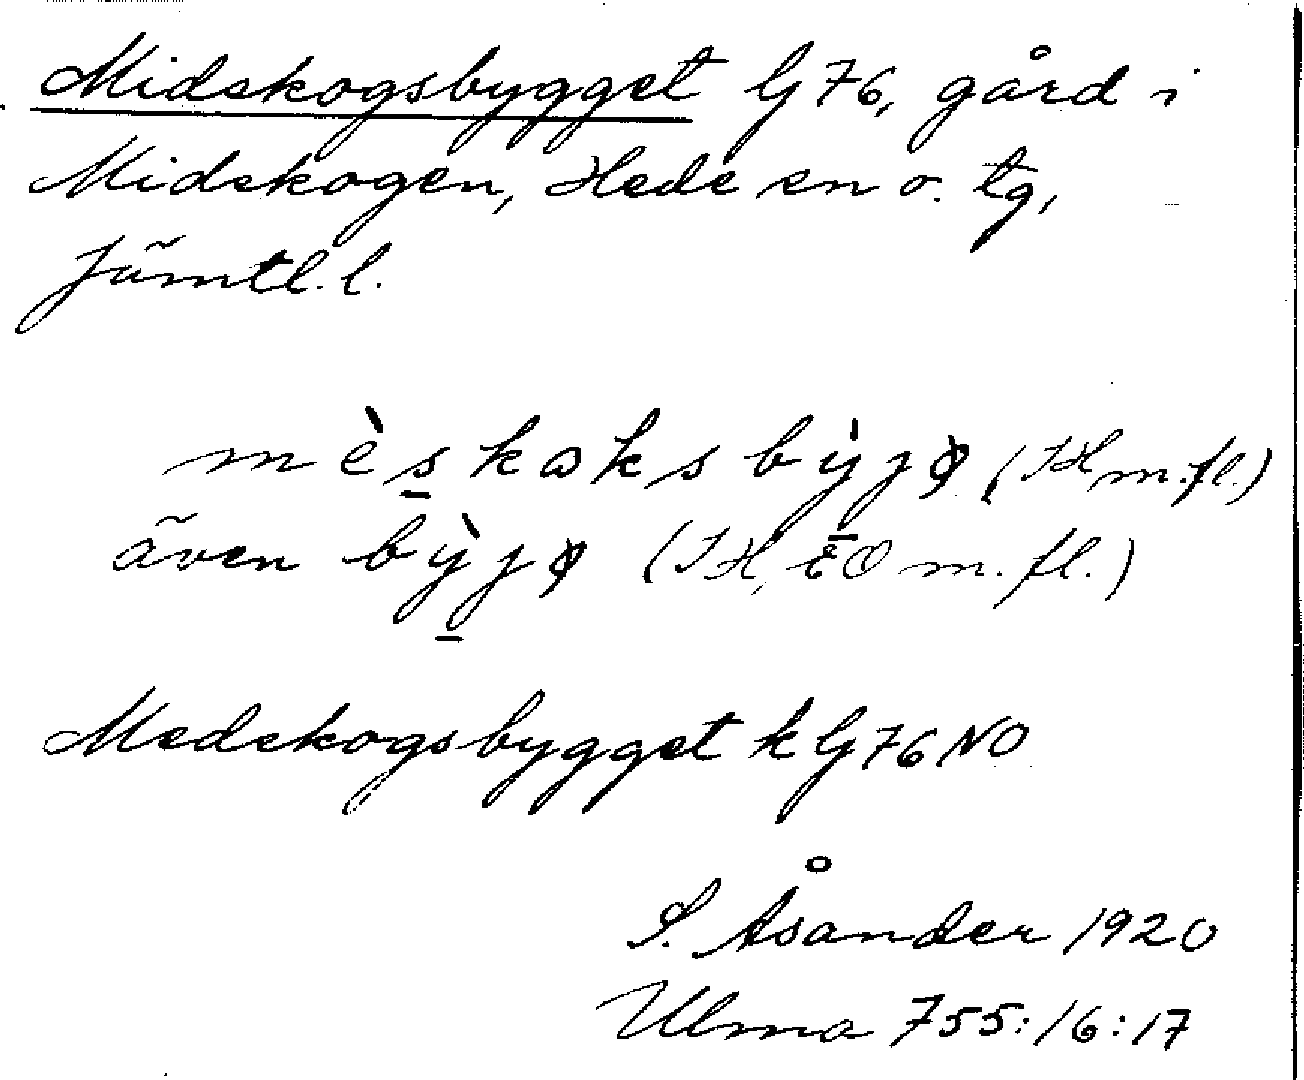 Midskogsbygget G 76, gård i
Midskogen, Hede sn o. tg,
Jämtl. l.
mèskoksbỳjø (IH m.fl.)
även bỳjø (IH, EO m.fl.)
Medskogsbygget k G 76 NO
S. Åsander 1920
Ulma 755:16:17